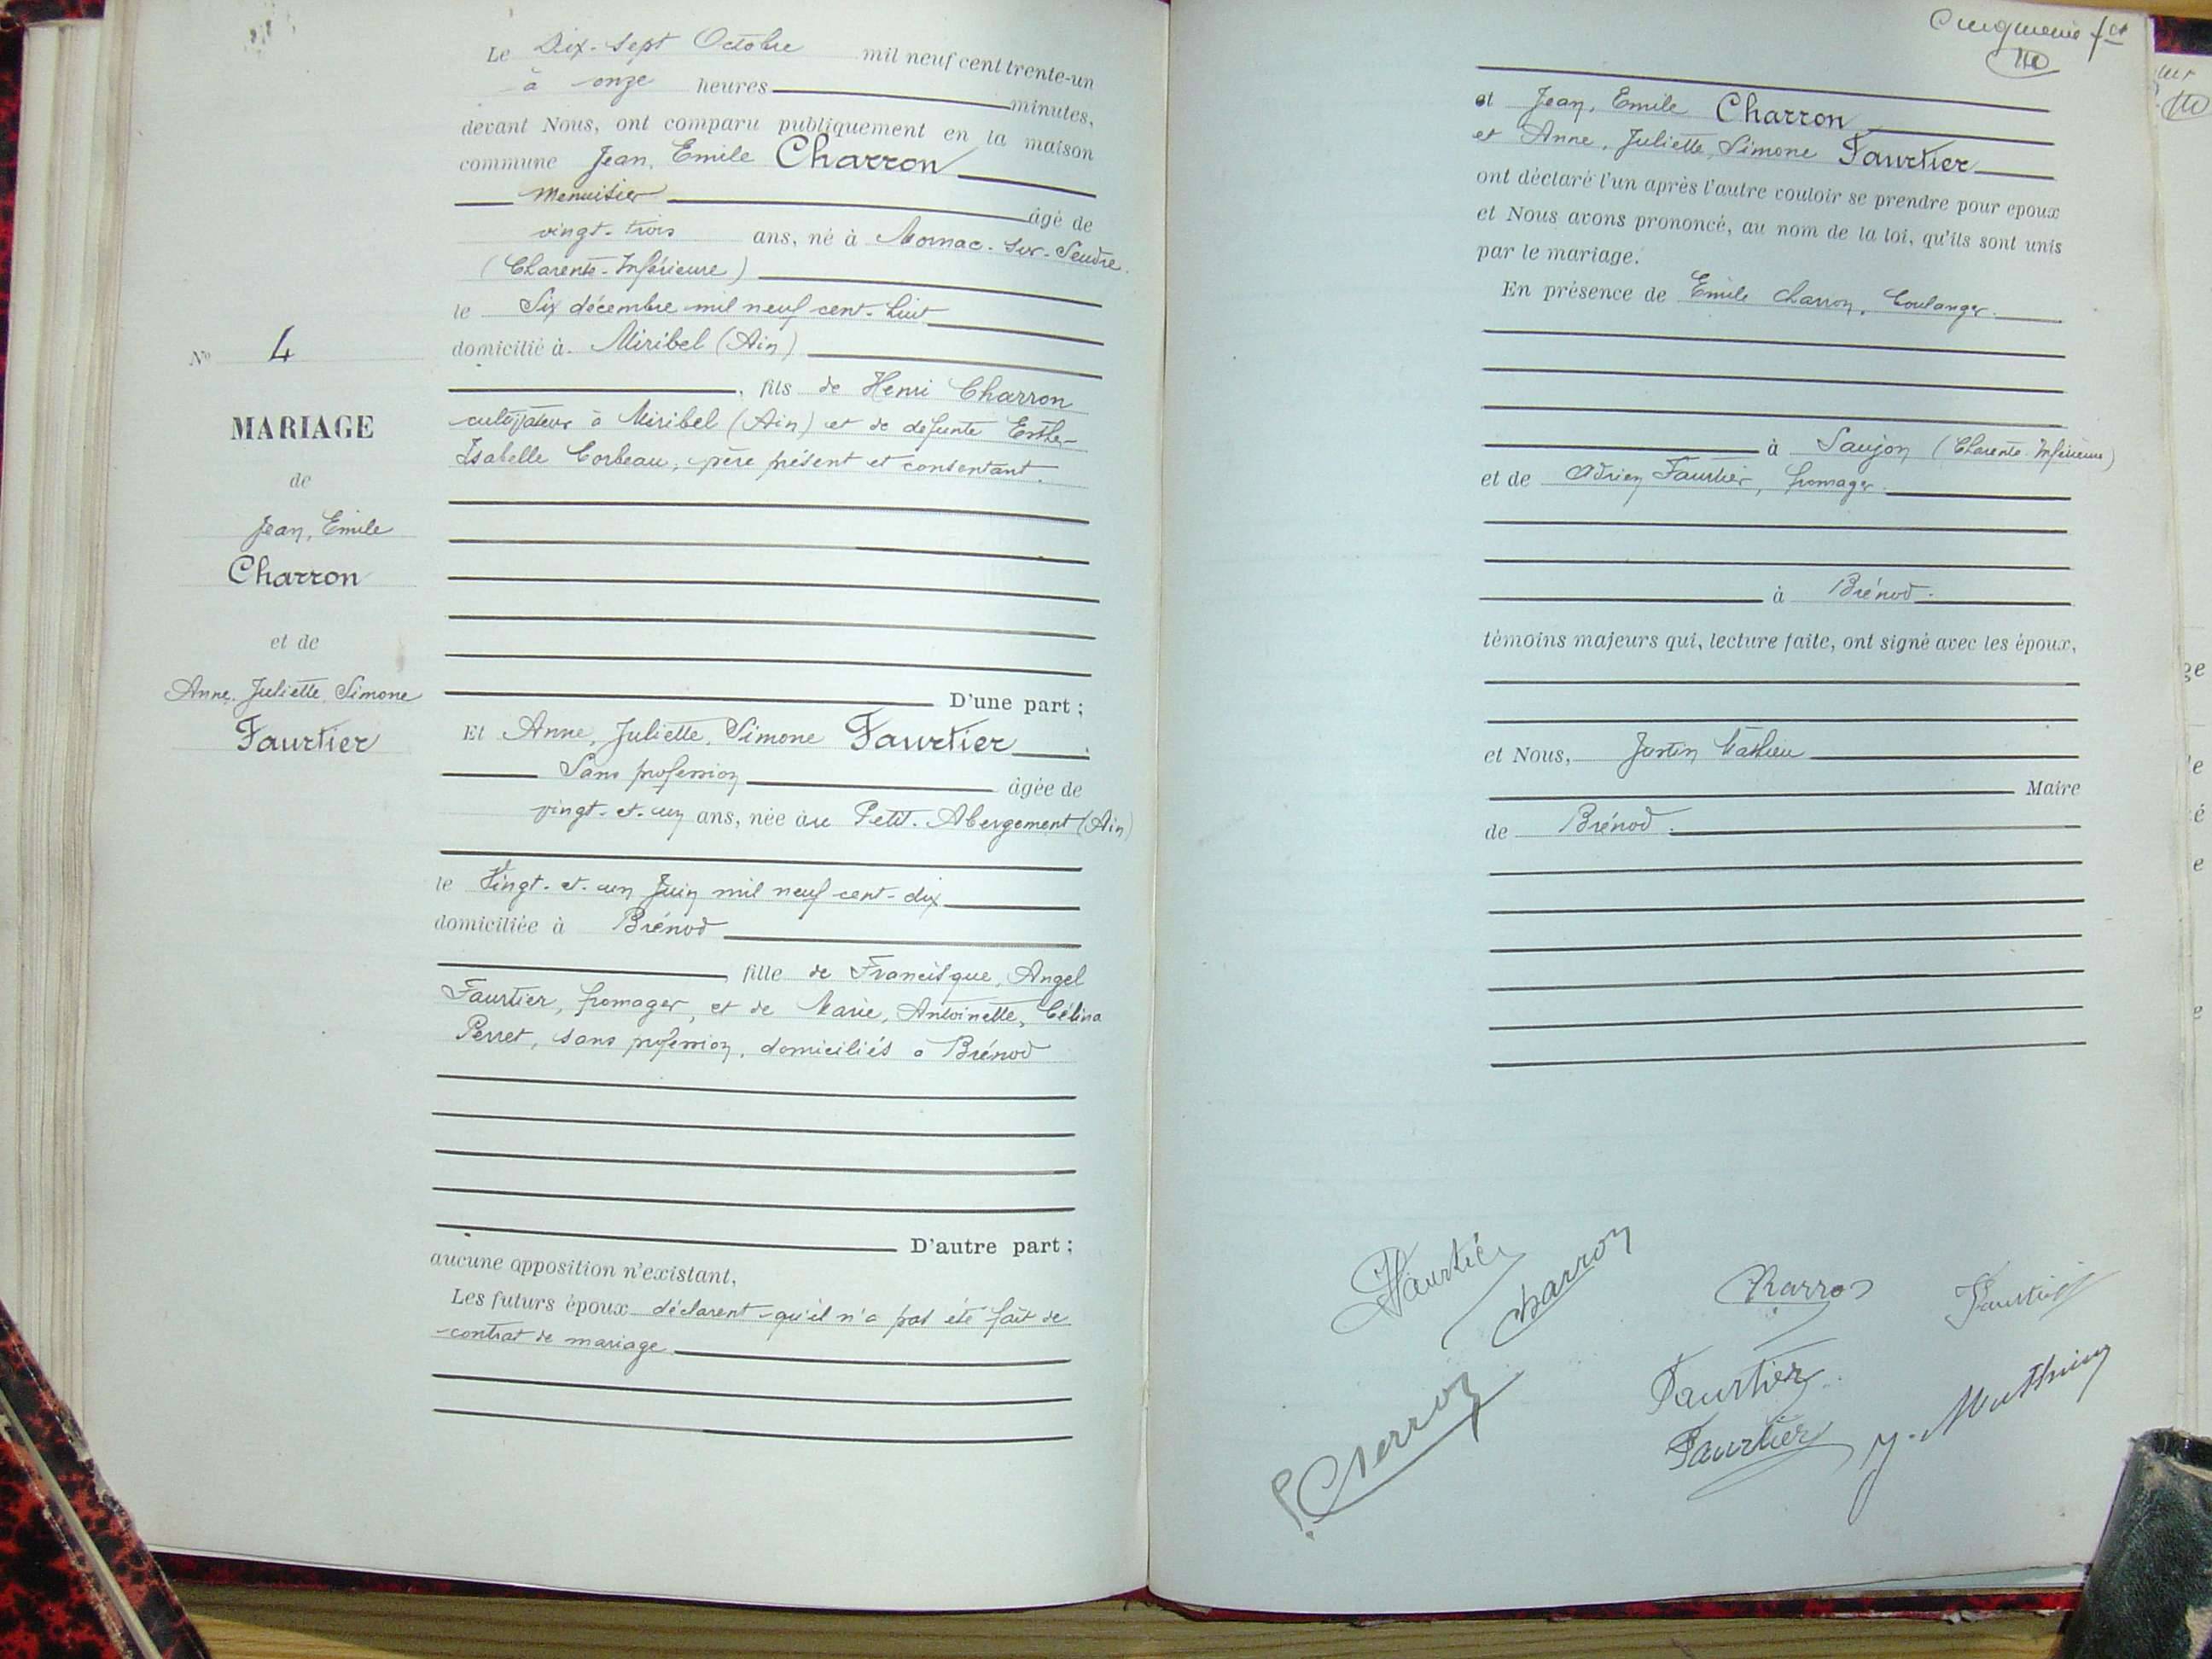 Le Dix-sept Octobre mil neuf cent trente-un
à onze heures minutes,
devant Nous, ont comparu publiquement en la maison
commune Jean, Emile Charron
Menuisier âgé de
vingt-trois ans, né à Mornac-sur-Seudre
(Charente-Inférieure)
le Six décembre mil neuf cent-huit
domicilié à Miribel (Ain)
, fils de Henri Charron
cultivateur à Miribel (Ain) et de défunte Esther
Isabelle Corbeau, père présent et consentant.
D'une part ;
Et Anne, Juliette, Simone Faurtier
Sans profession âgée de
vingt-et-un ans, née au Petit-Abergement (Ain)
le Vingt-et-un Juin mil neuf cent-dix
domiciliée à Brénod
, fille de Francisque, Angel
Faurtier, fromager, et de Marie, Antoinette, Célina
Perret, sans profession, domiciliés à Brénod
D'autre part ;
aucune opposition n'existant,
Les futurs époux déclarent qu'il n'a pas été fait de
contrat de mariage
No 4
MARIAGE
de
Jean, Emile
Charron
et de
Anne, Juliette, Simone
Faurtier
et Jean, Emile Charron
et Anne, Juliette, Simone Faurtier
ont déclaré l'un après l'autre vouloir se prendre pour époux
et Nous avons prononcé, au nom de la loi, qu'ils sont unis
par le mariage.
En présence de Emile Charron, boulanger
à Saujon (Charente-Inférieure)
et de Adrien Faurtier, fromager
à Brénod
témoins majeurs qui, lecture faite, ont signé avec les époux,
et Nous, Justin Mathieu
Maire
de Brénod.
Faurtier
Charron
Charron
Faurtier
Faurtier
Faurtier
J. Mathieu